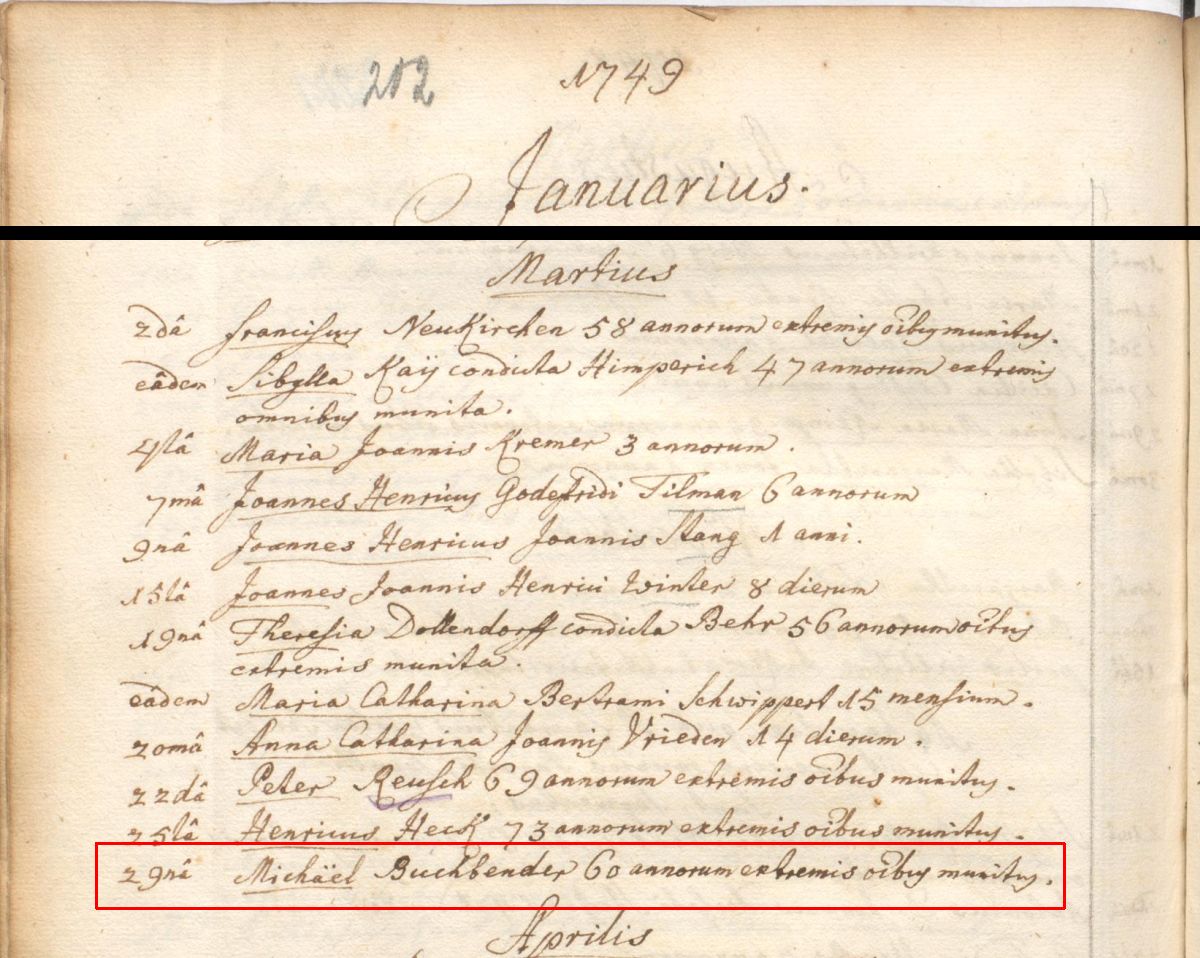 202 1749
Januarius.
Martius
2dâ Franciscus NeuKirchen 58 annorum extremis oîbus munitus.
eâdem Sibylla Kaÿ condicta Himperich 47 annorum extremis
omnibus munita.
4tâ Maria Joannis Kremer 3 annorum.
7mâ Joannes Henricus Godefridi Tilman 6 annorum
9nâ Joannes Henricus Joannis Stang 1 anni.
15tâ Joannes Joannis Henrici Winter 8 dierum
19nâ Theresia Dollendorff condicta Behr 56 annorum oîbus
extremis munita.
eâdem Maria Catharina Bertrami Schwippert 15 mensium.
20mâ Anna Catharina Joannis Vrieden 14 dierum.
22dâ Peter Reusch 69 annorum extremis oîbus munitus.
25tâ Henricus HecK 73 annorum extremis oîbus munitus.
29nâ Michäel Buchbender 60 annorum extremis oîbus munitus.
Aprilis